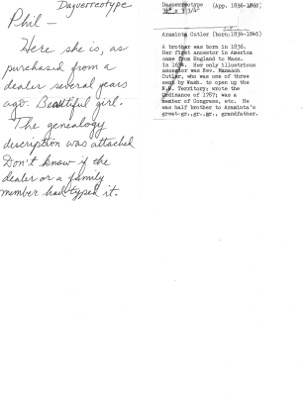 Daguerreotype
Phil —
Here she is, as
purchased from a
dealer several years
ago. Beautiful girl.
The genealogy
description was attached
Don't know if the
dealer or a family
member had typed it.
Daguerreotype (App. 1856-1860)
Araminta Cutler (born: 1834-1840)
A brother was born in 1836.
Her first ancestor in America
came from England to Mass.
in 1634. Her only illustrious
ancestor was Rev. Manasah
Cutler, who was one of three
sent by Wash. to open up the
N.W. Territory; wrote the
Ordinance of 1787; was a
member of Congress, etc. He
was half brother to Araminta's
great-gr.,gr.,gr., grandfather.